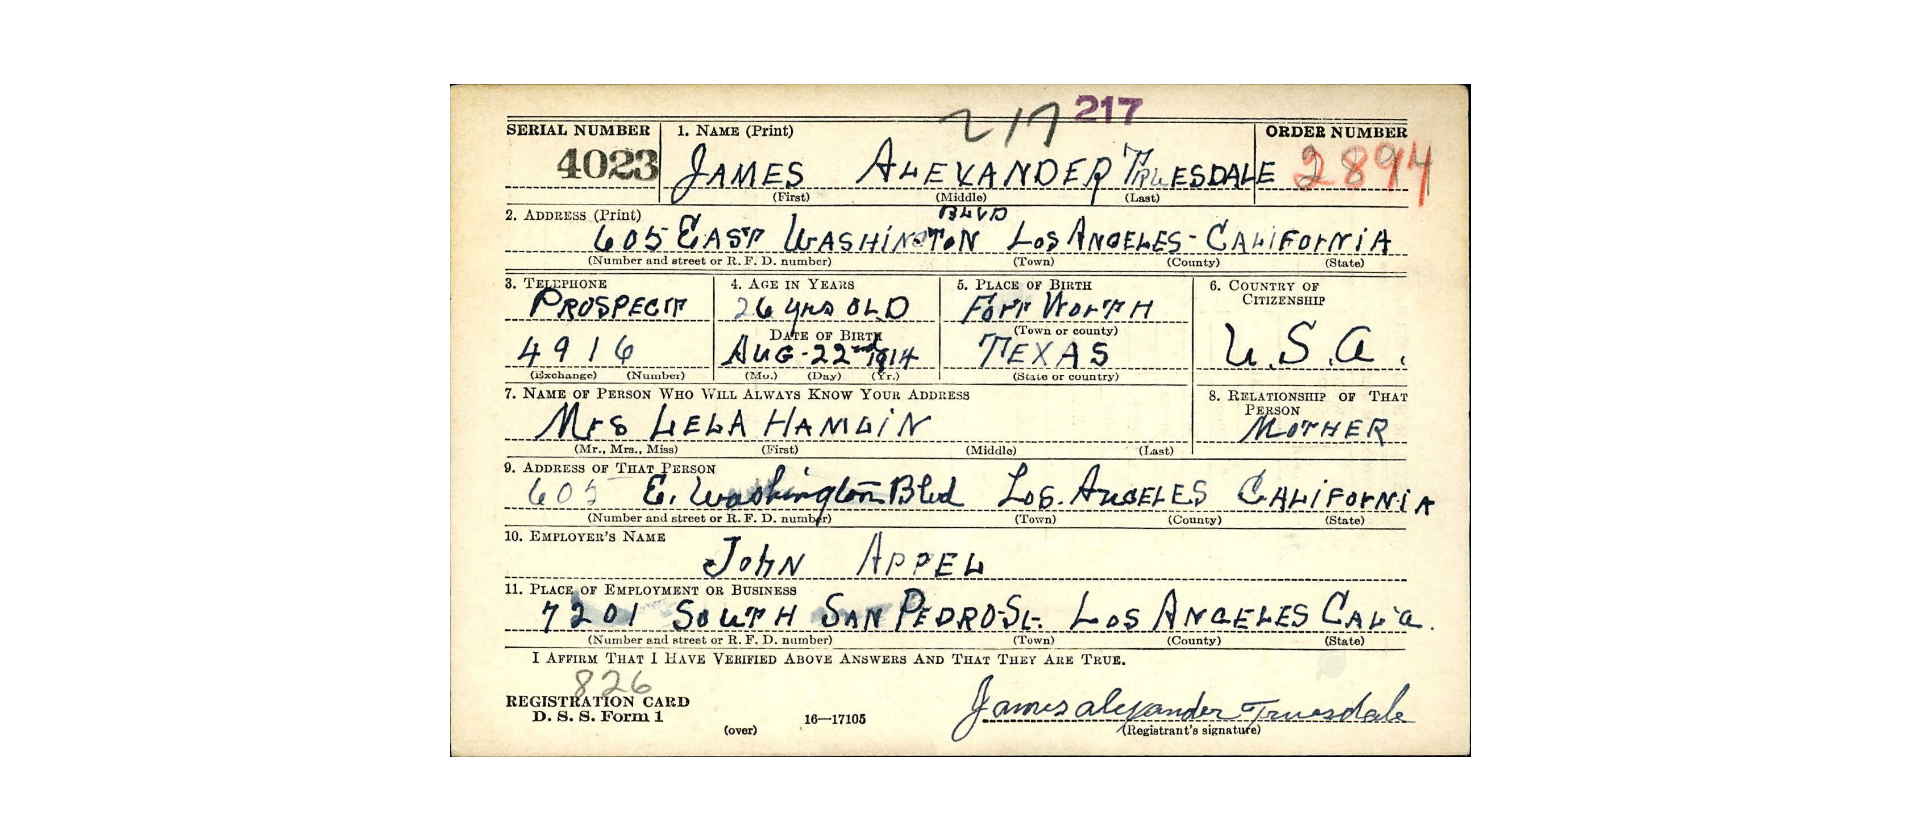 217 217
SERIAL NUMBER 1. NAME (Print) ORDER NUMBER
4023 JAMES ALEXANDER TRUESDALE 2894
(First) (Middle) (Last)
2. ADDRESS (Print) BLVD
605 EAST WASHINGTON LOS ANGELES - CALIFORNIA
(Number and street or R. F. D. number) (Town) (County) (State)
3. TELEPHONE 4. AGE IN YEARS 5. PLACE OF BIRTH 6. COUNTRY OF CITIZENSHIP
PROSPECT 26 yrs OLD FORT WORTH
DATE OF BIRTH (Town or county)
4916 AUG-22nd 1914 TEXAS U.S.A.
(Exchange) (Number) (Mo.) (Day) (Yr.) (State or country)
7. NAME OF PERSON WHO WILL ALWAYS KNOW YOUR ADDRESS 8. RELATIONSHIP OF THAT PERSON
Mrs LELA HAMLIN MOTHER
(Mr., Mrs., Miss) (First) (Middle) (Last)
9. ADDRESS OF THAT PERSON
605 E. Washington Blvd LOS. ANGELES CALIFORNIA
(Number and street or R. F. D. number) (Town) (County) (State)
10. EMPLOYER'S NAME
JOHN APPEL
11. PLACE OF EMPLOYMENT OR BUSINESS
7201 SOUTH SAN PEDRO-St. LOS ANGELES CAL'a.
(Number and street or R. F. D. number) (Town) (County) (State)
I AFFIRM THAT I HAVE VERIFIED ABOVE ANSWERS AND THAT THEY ARE TRUE.
826
REGISTRATION CARD James Alexander Truesdale
D. S. S. Form 1 (over) 16—17105 (Registrant's signature)